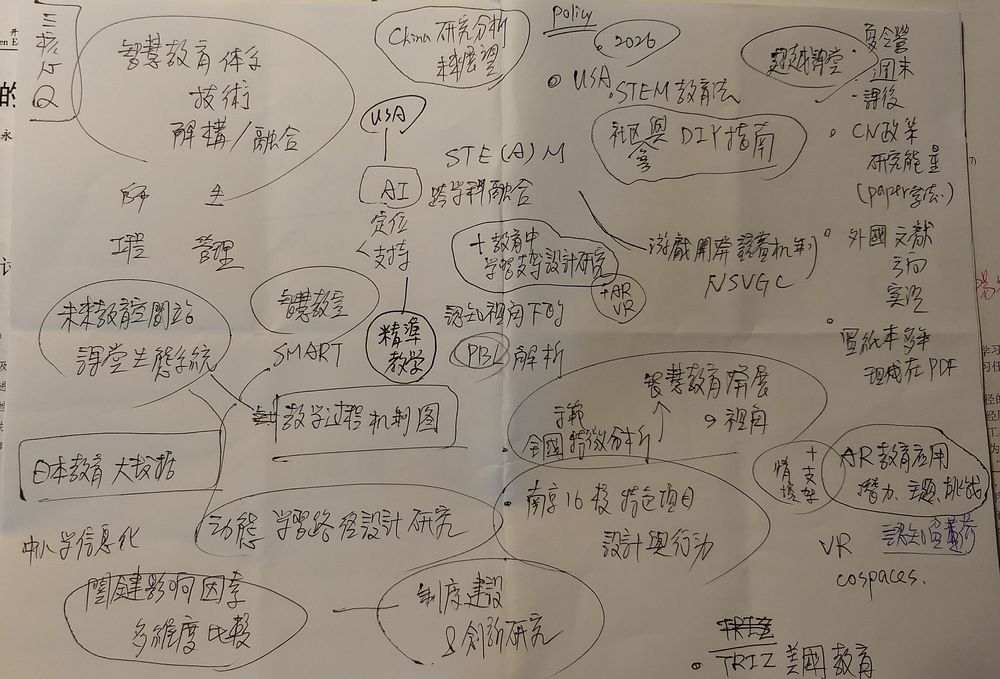 三核心
Q
智慧教育体系
技術
解構/融合
師 生
工程 管理
China 研究分析
未來展望
USA
AI
定位
支持
精準
教学
STE(A)M
跨学科融合
+教育中
學習支架設計研究
+AR
VR
認知視角下的
PBL 解析
policy
2026
USA
STEM教育法
社区與
DIY指南
遊戲開
机制
NSVGC
超越課堂
夏令營
週末
課後
CN政策
研究能量
(paper
外國文獻
方向
實況
PDF
未來教育空間站
課堂生態系統
智慧教室
SMART
教学过程机制图
日本教育大
中小学信息化
动態学習路徑設計研究
關鍵影响因素
多維度比較
制度建設
&創新研究
智慧教育
視角
示範
全國特徵分析
南京16校特色项目
設計與行动
+支架
情境
AR教育应用
潜力、主題、挑战
認知
VR
cospaces.
TRIZ 美國教育